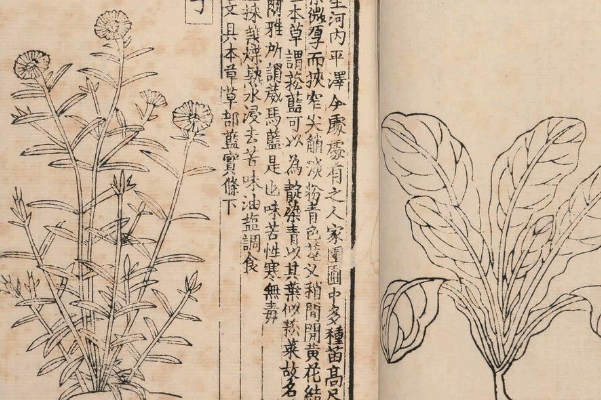 生河内平澤今處處有之人家園圃中多種苗高尺
微厚而狹窄尖䚡淡粉青色莖叉稍間開黄花結
本草謂菘藍可以為靛染青以其葉似菘菜故名
爾雅所謂葴馬藍是也味苦性寒無毒
採葉煠熟水浸去苦味油盐調食
文具本草草部藍實條下